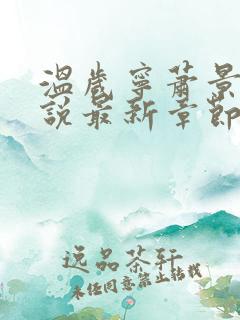 温岁宁萧景
说最新章节
逸品茶轩
未经同意禁止转载